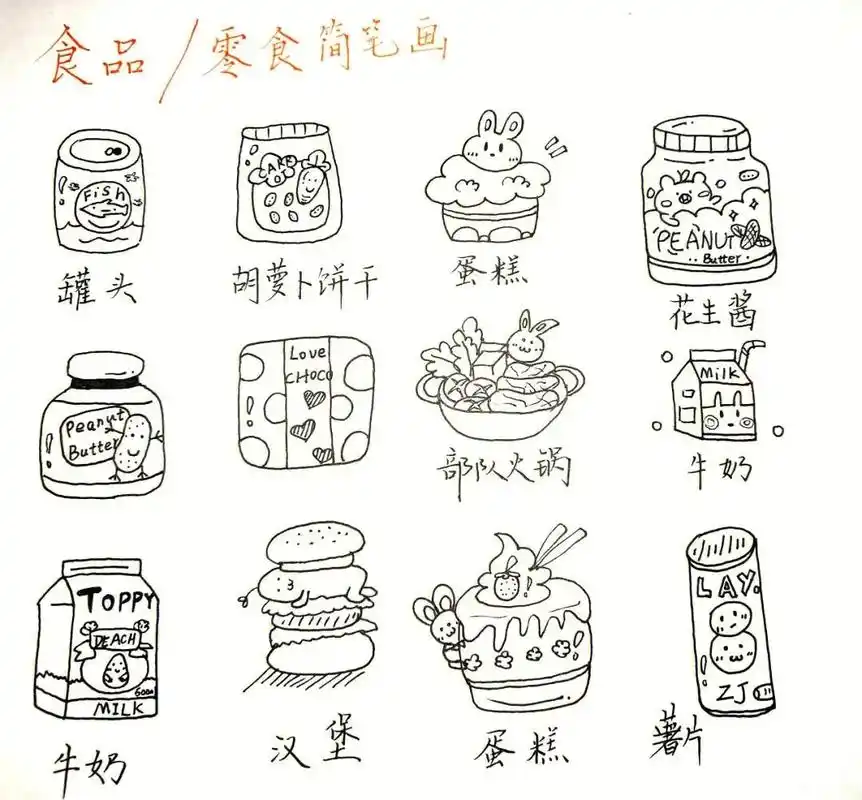 食品/零食简笔画
Fish
罐头
CARR
OT
胡萝卜饼干
蛋糕
PEANUT
Butter
花生酱
Peanut
Butter
Love
CHOCO
部队火锅
Milk
牛奶
TOPPY
PEACH
Good
MILK
牛奶
汉堡
蛋糕
LAY.
ZJ
薯片